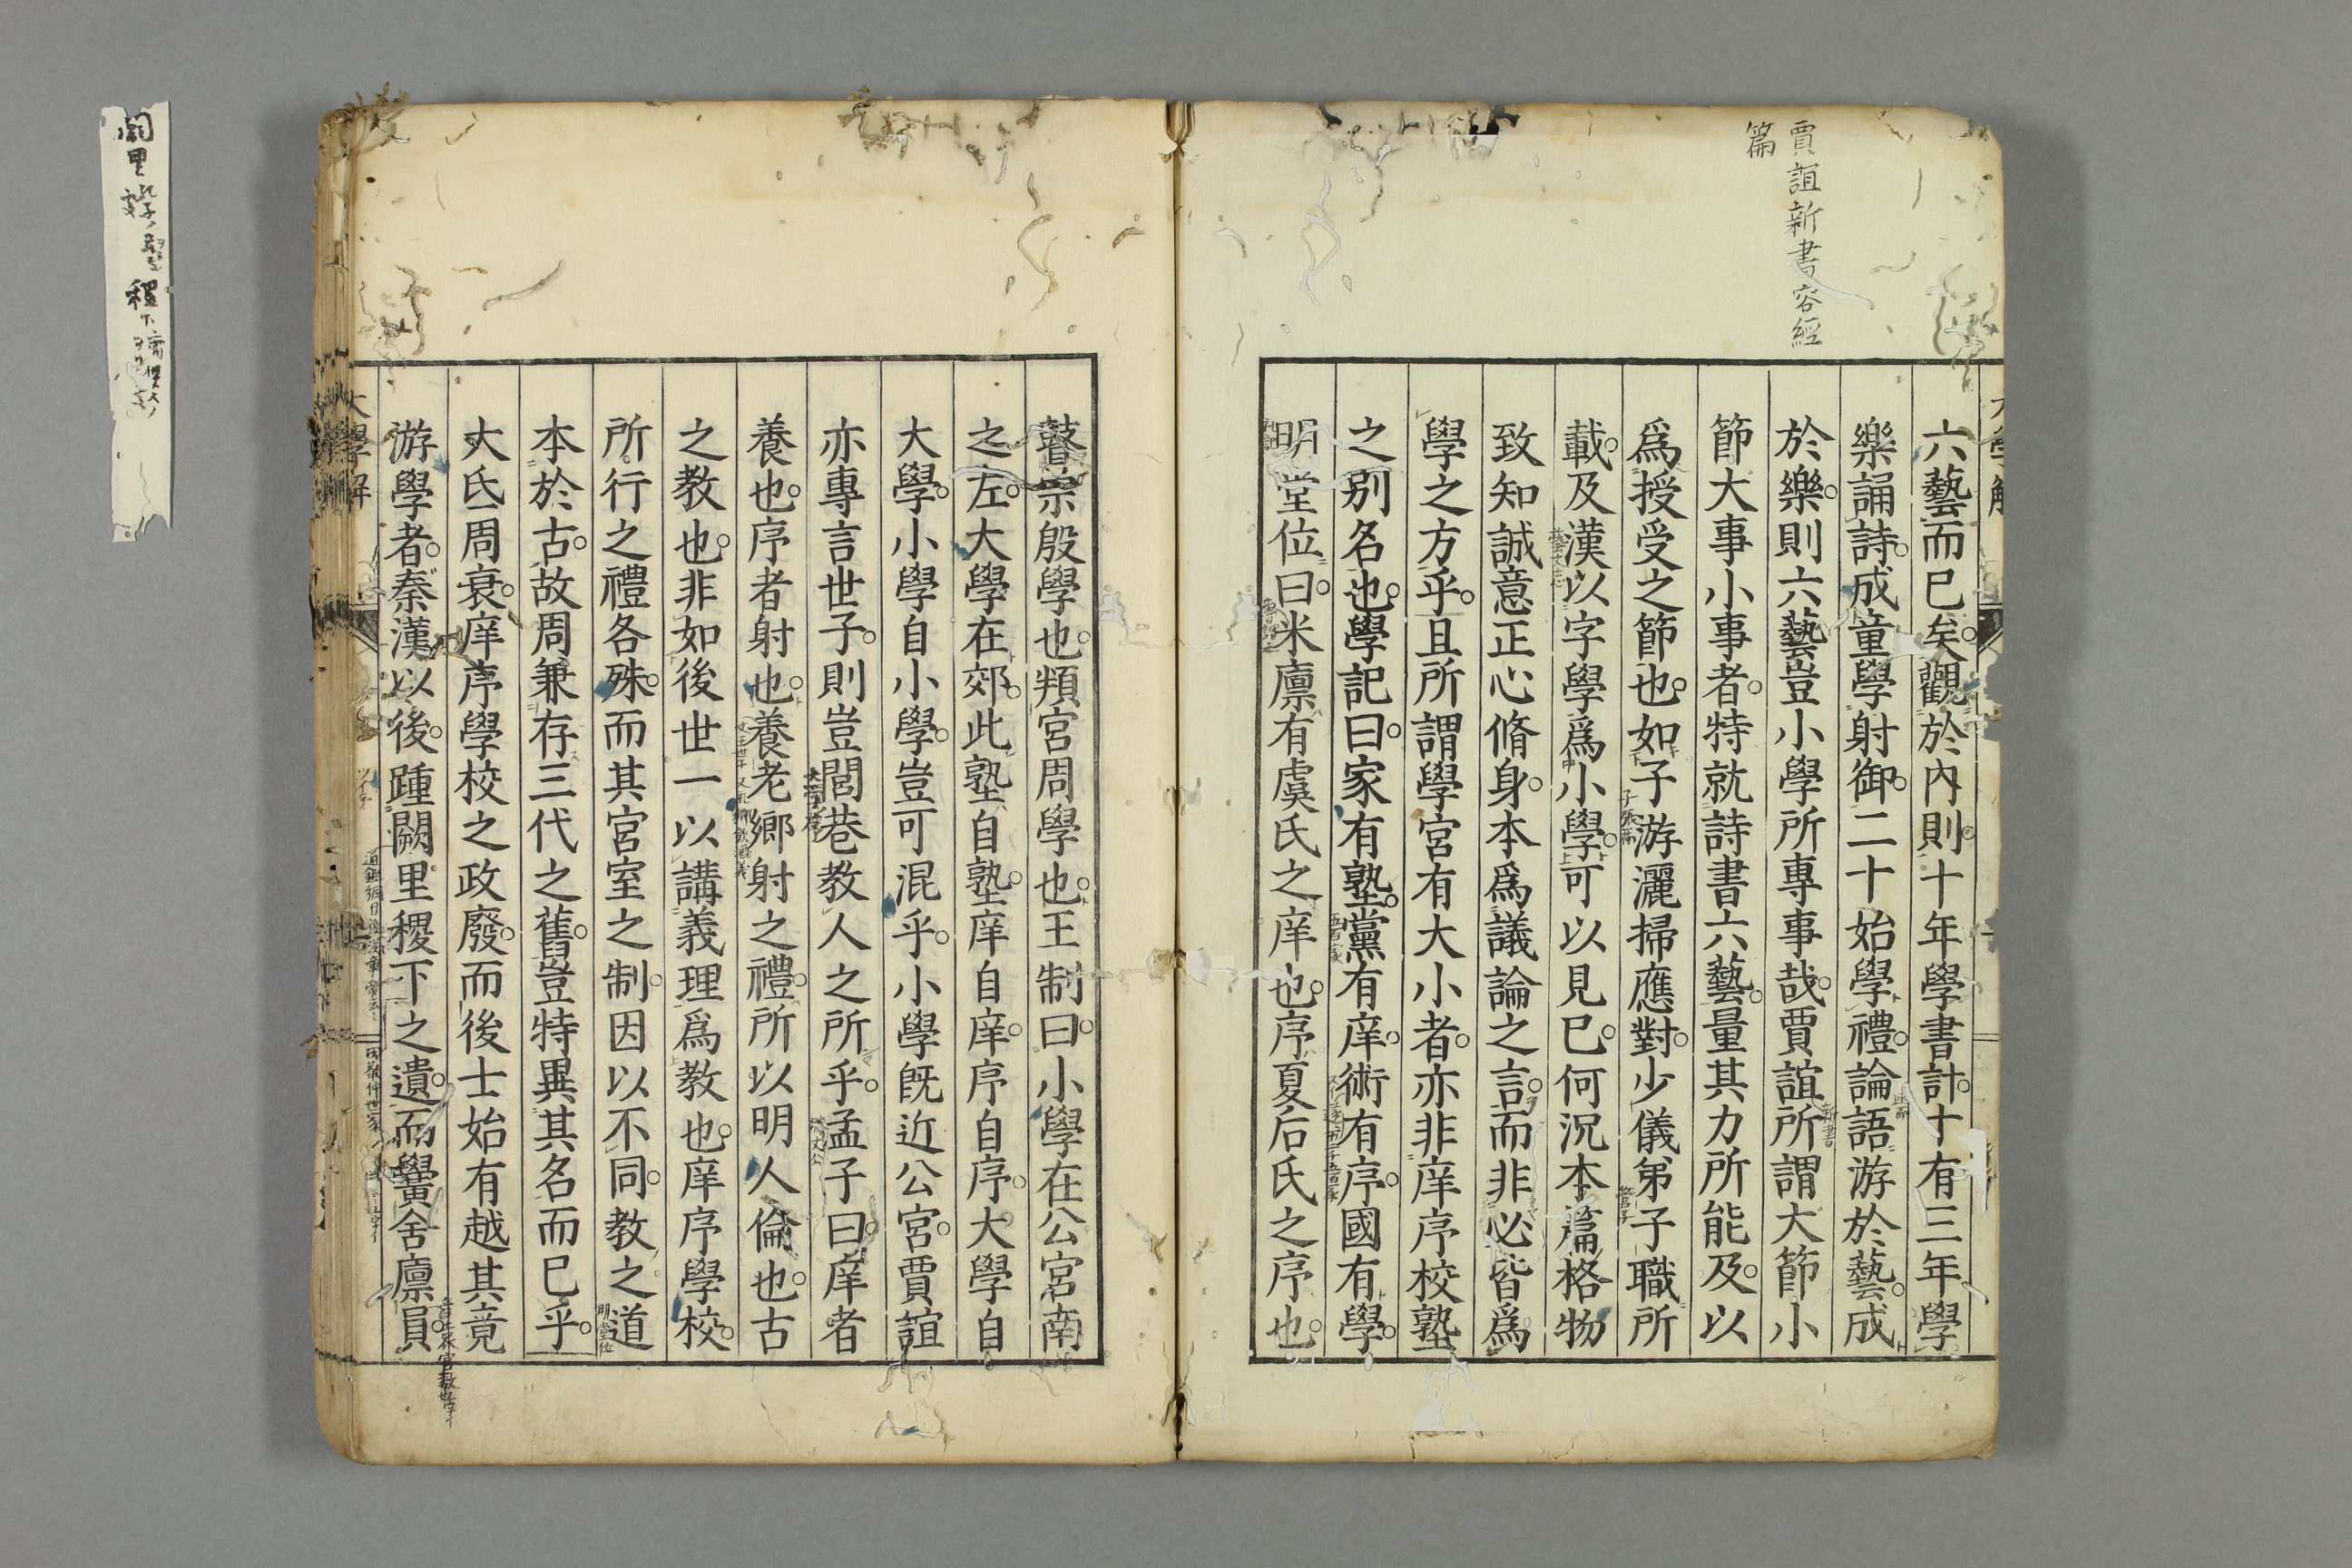 賈誼新書容經
篇
六藝而已矣。觀於內則。十年學書計。十有三年學
樂誦詩。成童學射御。二十始學禮。論語游於藝。成
於樂。則六藝豈小學所專事哉。賈誼所謂大節小
節大事小事者。特就詩書六藝。量其力所能及。以
爲授受之節也。如子游灑掃應對。少儀弟子職所
載。及漢以字學爲小學。可以見已。何況本篇格物
致知誠意正心脩身。本爲議論之言。而非必皆爲
學之方乎。且所謂學宮有大小者。亦非庠序校塾
之別名也。學記曰。家有塾。黨有庠。術有序。國有學。
明堂位曰。米廩有虞氏之庠也。序夏后氏之序也。
瞽宗殷學也。頖宮周學也。王制曰。小學在公宮南
之左。大學在郊。此塾自塾。庠自庠。序自序。大學自
大學。小學自小學。豈可混乎。小學既近公宮。賈誼
亦專言世子。則豈閭巷教人之所乎。孟子曰。庠者
養也。序者射也。養老鄉射之禮。所以明人倫也。古
之教也。非如後世一以講義理爲教也。庠序學校。
所行之禮各殊。而其宮室之制。因以不同。教之道
本於古。故周兼存三代之舊。豈特異其名而已乎。
大氐周衰。庠序學校之政廢。而後士始有越其竟
游學者。秦漢以後。踵闕里稷下之遺。而黌舍廩員。
大學解